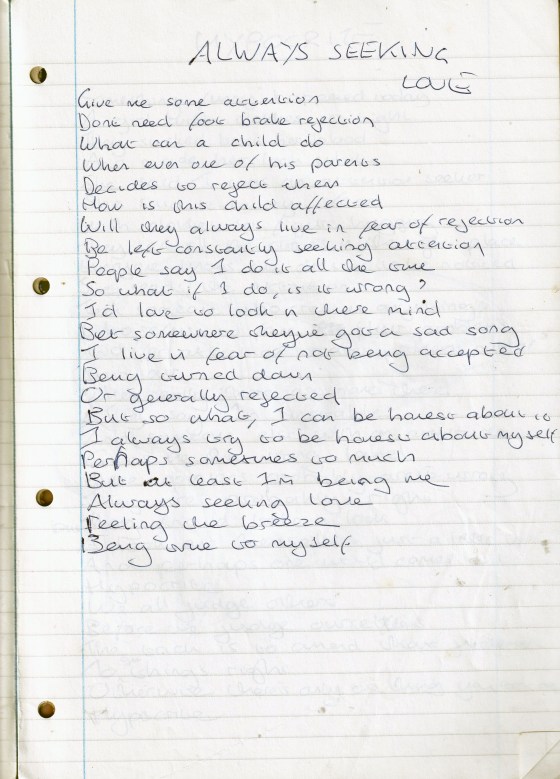 ALWAYS SEEKING
LOVE
Give me some attention
Dont need foot brake rejection
What can a child do
When even one of his parents
Decides to reject them
How is this child affected
Will they always live in fear of rejection
Be left constantly seeking attention
People say I do it all the time
So what if I do, is it wrong?
I'd love to look in there mind
Bet somewhere they've got a sad song
I live in fear of not being accepted
Being turned down
Or generally rejected
But so what, I can be honest about it
I always try to be honest about myself
Perhaps sometimes to much
But at least I'm being me
Always seeking love
Feeling the breeze
Being true to myself